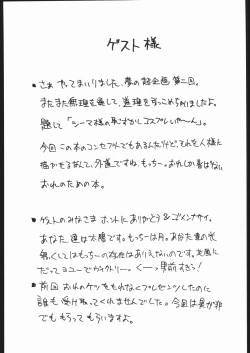 ゲスト様
・さぁ やってまいりました、夢の超企画 第二回。
またまた無理を通して、道理を引っこめちゃいましたよ。
題して「シーマ様の恥ずかしコスプレいや〜ん」。
今回この本のコンセプトでもあるんだけど、それを人様に
描かせるなんて、外道ですね、もっちー。おれしか喜ばない
おれのための本。
・ゲストのみなさま ホントにありがとう&ゴメンナサイ。
あなた達は太陽です。もっちーは月。あなた達の光
無くしてはもっちーの存在はありえないのです。
だってヨユーで
・前回 おれのケツをもれなくプレゼントしたのに
誰も受け取ってくれませんでした。今回は是が非
でももらってもらいますよ。